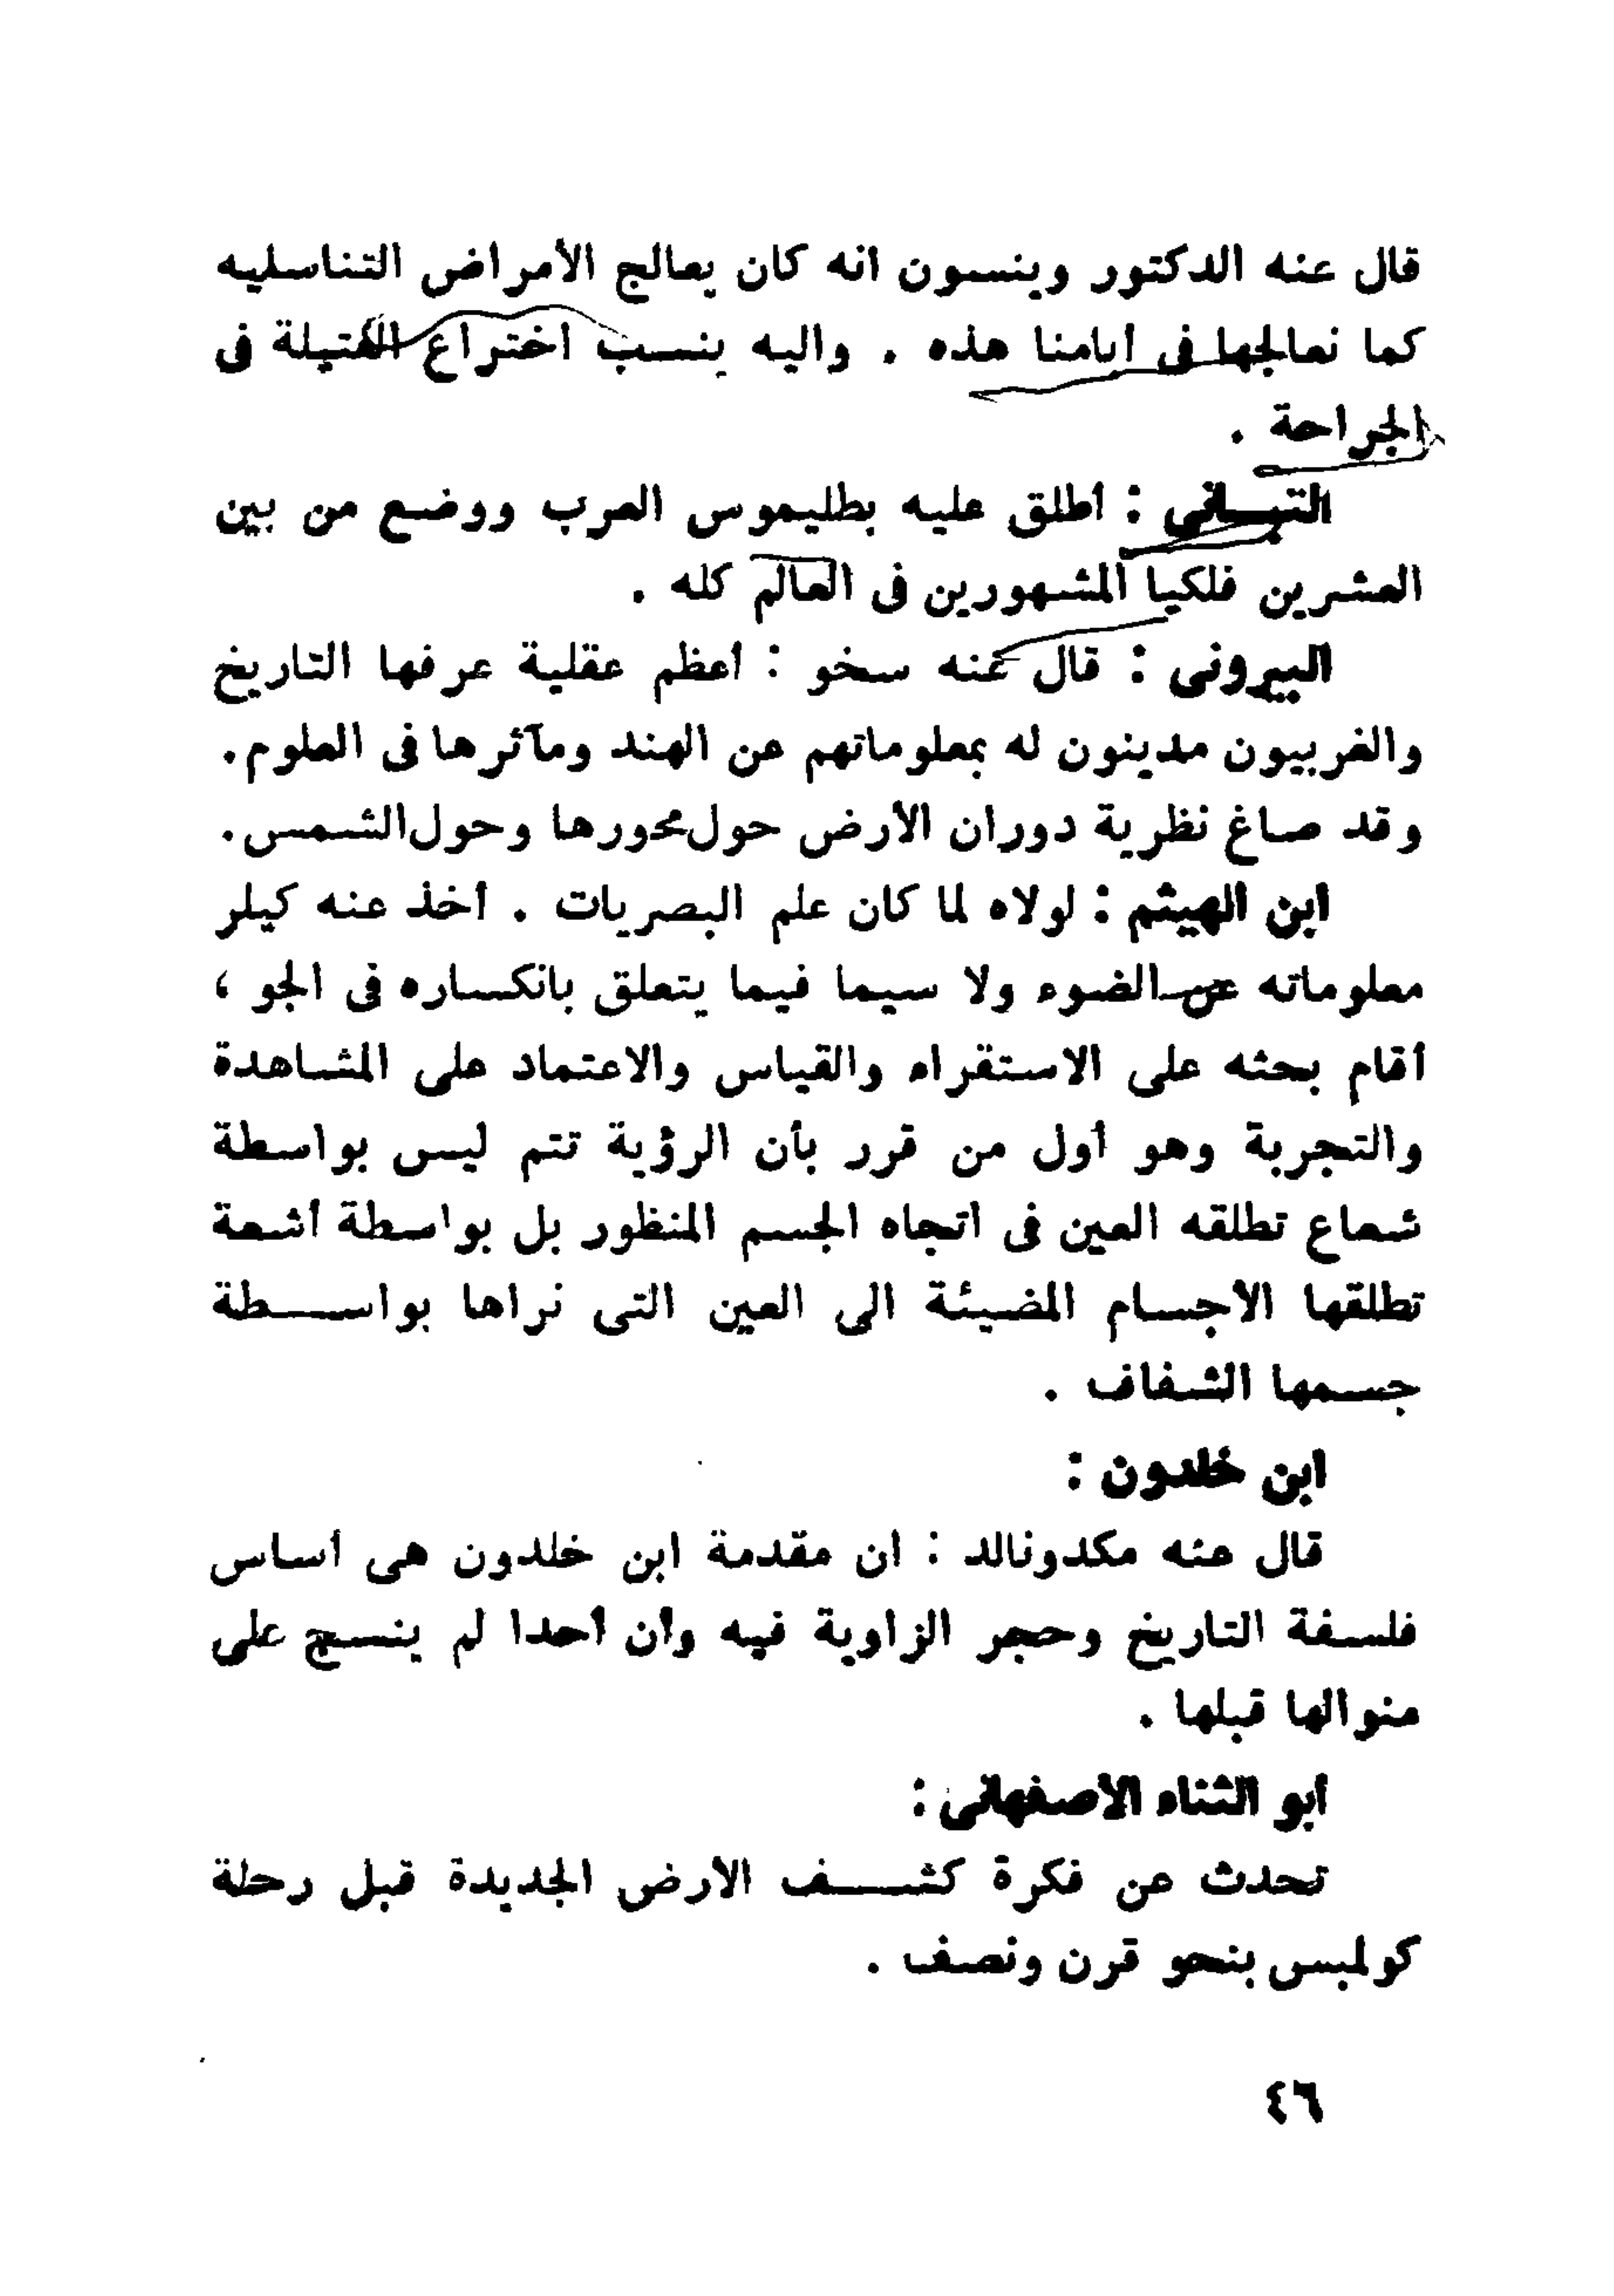 قال عنه الدكتور وينسون انه كان يعالج الأمراض التناسليه
كما نعالجها فى أيامنا هذه . واليه ينسب اختراع الفتيلة فى
الجراحة .
التبــانى : أطلق عليه بطليموس العرب ووضع من بين
العشرين فلكيا المشهورين فى العالم كله .
البيرونى : قال عنه سخو : أعظم عقلية عرفها التاريخ
والغربيون مدينون له بمعلوماتهم عن الهند ومآثرها فى العلوم.
وقد صاغ نظرية دوران الأرض حول محورها وحول الشمس.
ابن الهيثم : لولاه لما كان علم البصريات . أخذ عنه كيلر
معلوماته عن الضوء ولا سيما فيما يتعلق بانكساره فى الجو ،
أقام بحثه على الاستقراء والقياس والاعتماد على المشاهدة
والتجربة وهو أول من قرر بأن الرؤية تتم ليس بواسطة
شعاع تطلقه العين فى اتجاه الجسم المنظور بل بواسطة أشعة
تطلقها الأجسام المضيئة الى العين التى نراها بواســـطة
جسمها الشفاف .
ابن خلدون :
قال عنه مكدونالد : ان مقدمة ابن خلدون هى أساس
فلسفة التاريخ وحجر الزاوية فيه وأن أحدا لم ينسج على
منوالها قبلها .
أبو الثناء الأصفهانى :
تحدث عن فكرة كشـــف الأرض الجديدة قبل رحلة
كولمبس بنحو قرن ونصف .
٤٦